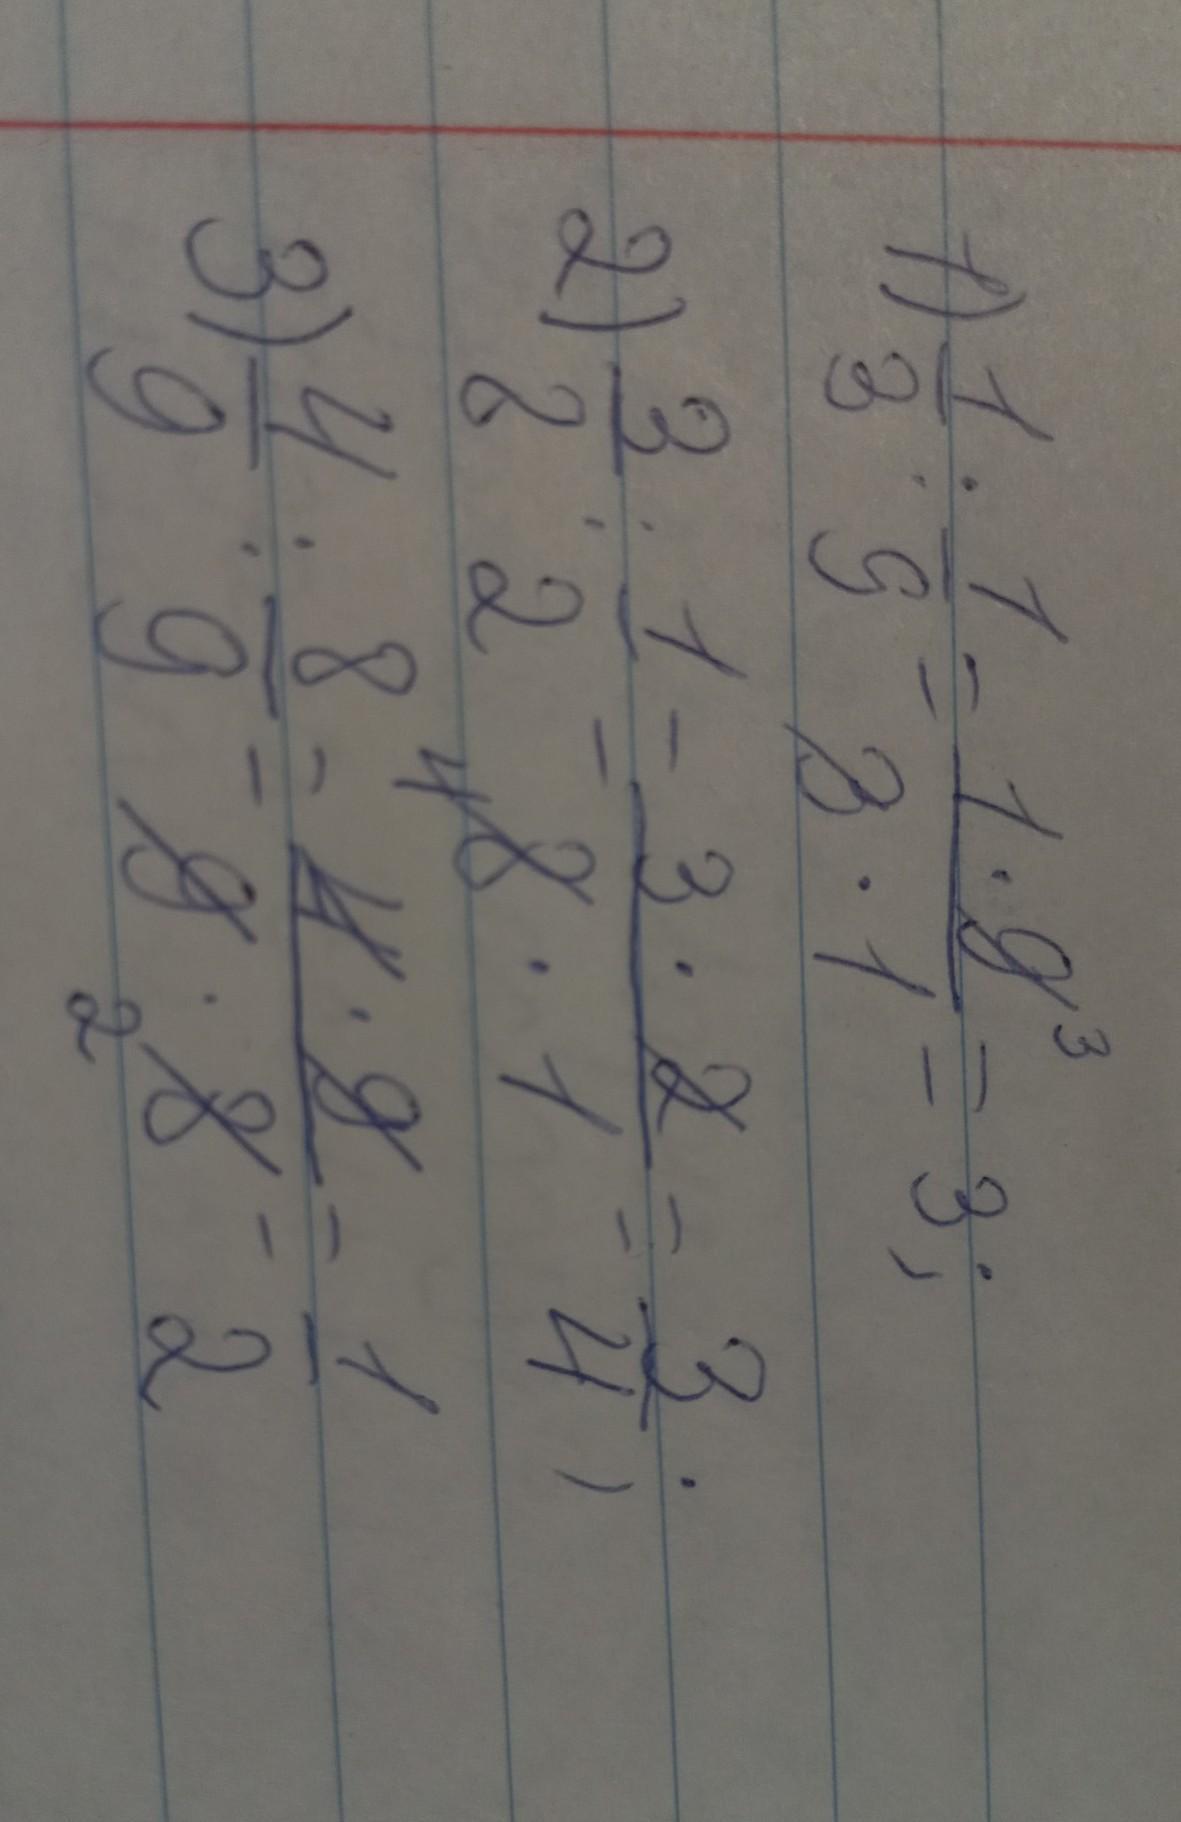 1) 1/3 : 1/9 = 1·9³/3·1 = 3;
2) 3/8 : 1/2 = 3·2/⁴8·1 = 3/4;
3) 4/9 : 8/9 = 4·9/9·₂8 = 1/2